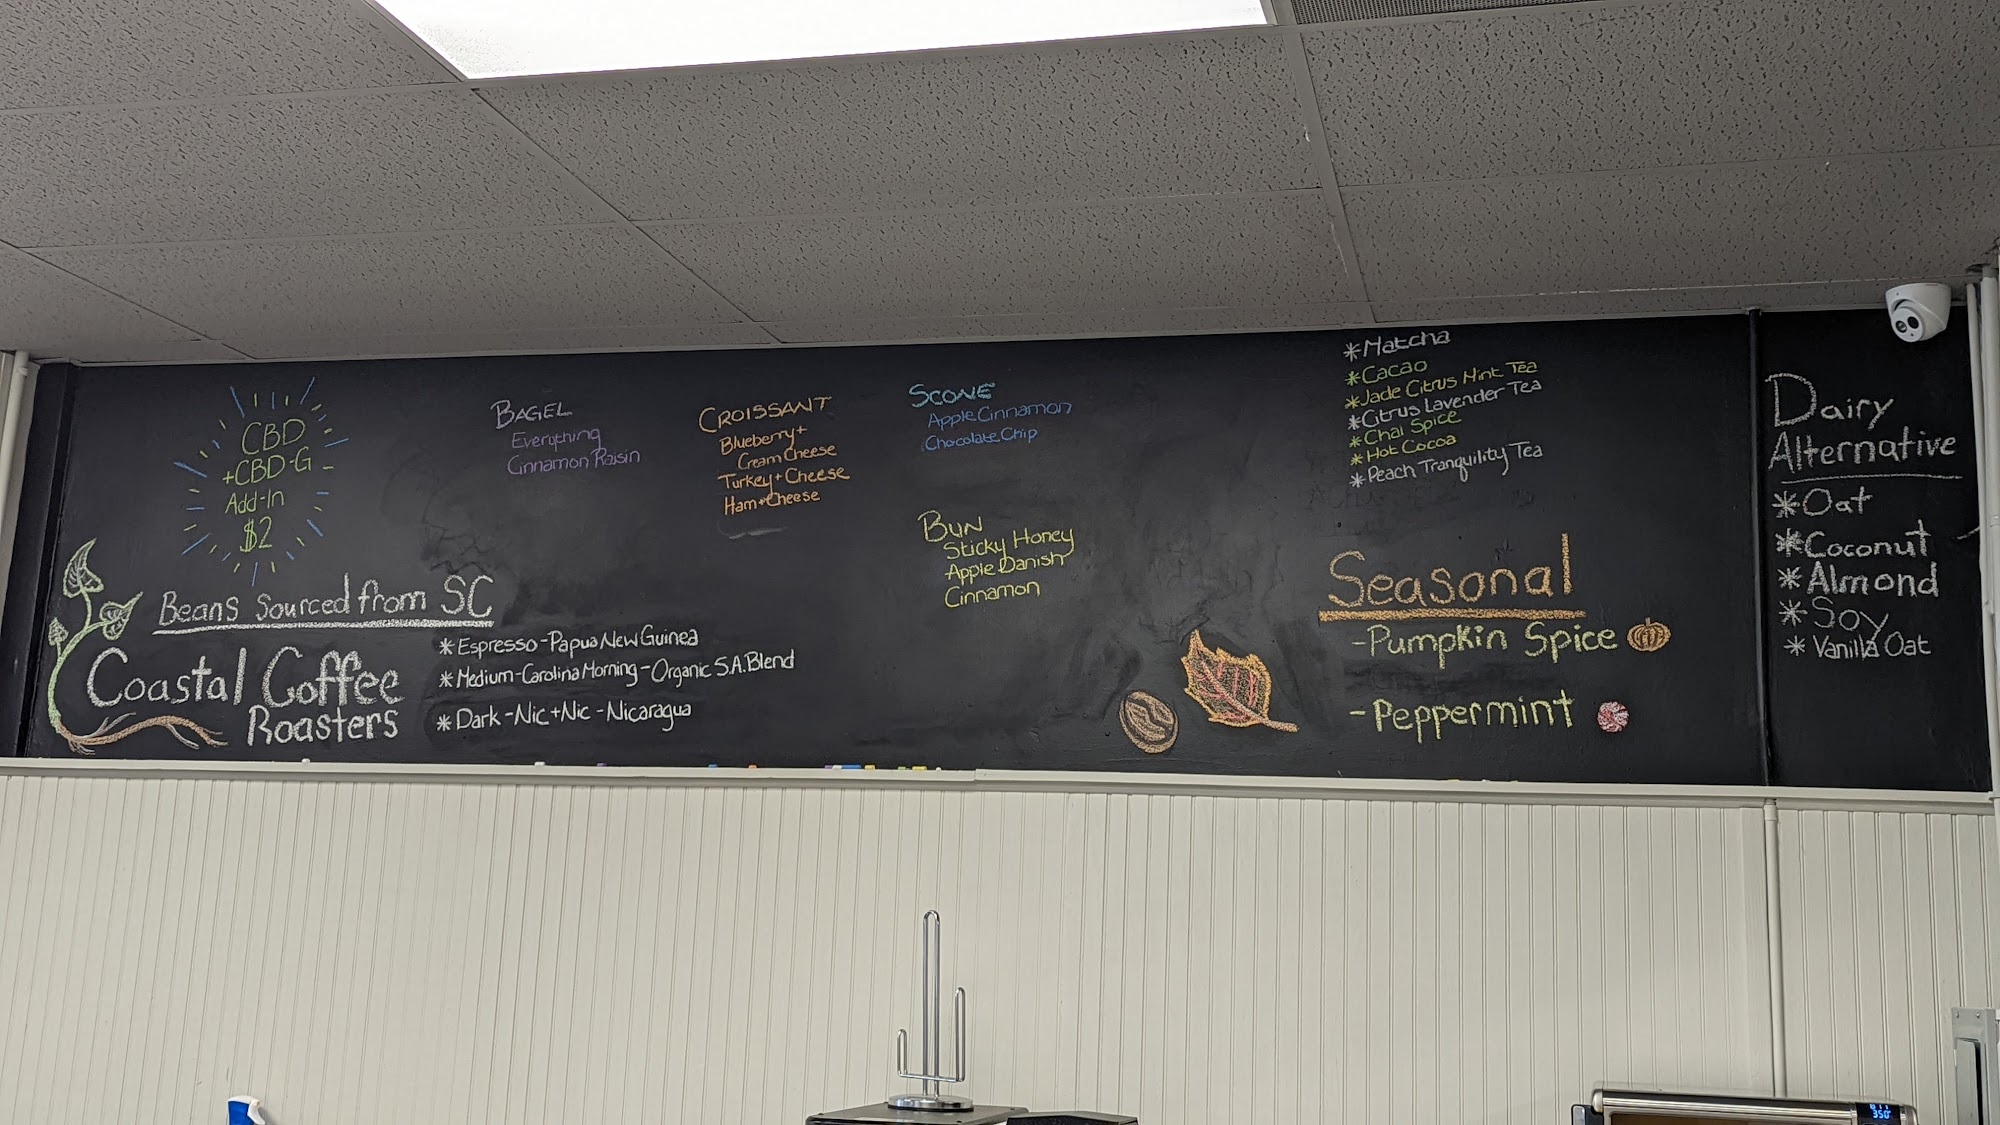 CBD
+CBD-G
Add-In
$2
Beans Sourced from SC
Coastal Coffee
Roasters
* Espresso-Papua New Guinea
* Medium-Carolina Morning-Organic S.A. Blend
* Dark-Nic+Nic-Nicaragua
BAGEL
Everything
Cinnamon Raisin
CROISSANT
Blueberry+
Cream Cheese
Turkey+Cheese
Ham+Cheese
SCONE
Apple Cinnamon
Chocolate Chip
BUN
Sticky Honey
Apple Danish
Cinnamon
*Matcha
*Cacao
*Jade Citrus Mint Tea
*Citrus Lavender Tea
*Chai Spice
*Hot Cocoa
*Peach Tranquility Tea
Seasonal
-Pumpkin Spice
-Peppermint
Dairy
Alternative
*Oat
*Coconut
*Almond
*Soy
*Vanilla Oat
350°